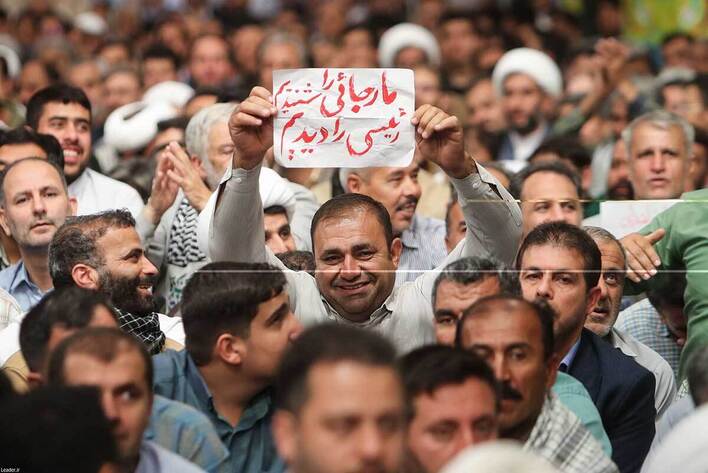 ما رجائی را شنیدیم
رئیسی را دیدیم
Leader.ir